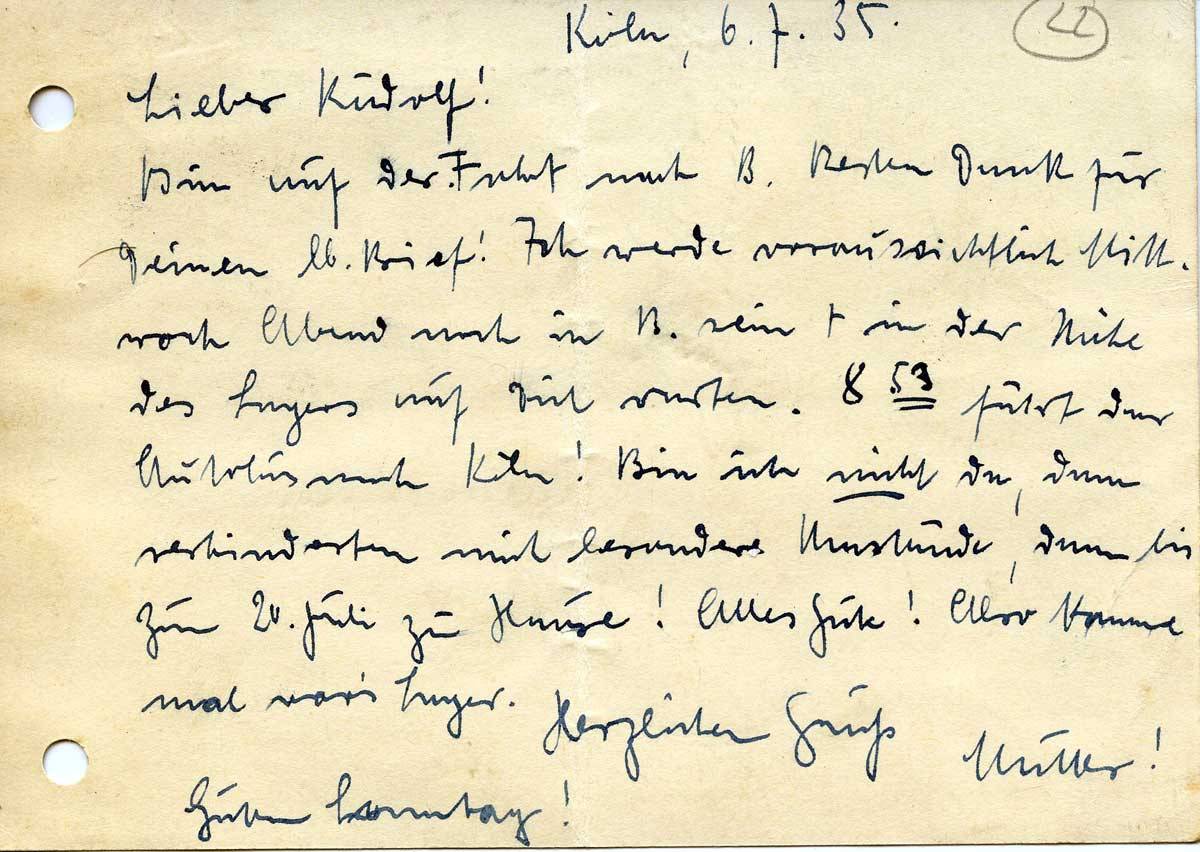 22
Köln, 6.7.35.
Lieber Rudolf!
Bin auf der Fahrt nach B. Besten Dank für
Deinen lb. Brief! Ich werde voraussichtlich Mitt-
woch Abend noch in B. sein + in der Nähe
des Lagers auf Dich warten. 8 53 fährt der
Autobus nach Köln! Bin ich nicht da, dann
verhinderten mich besondere Umstände, dann bis
zum 20. Juli zu Hause! Alles Gute! Also komme
mal vor's Lager.
Herzlichen Gruß
Mutter!
Guten Sonntag!